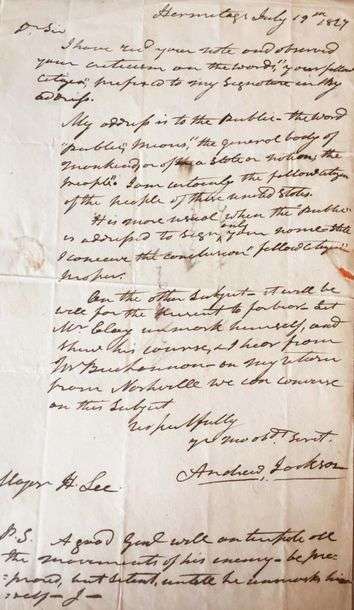 Hermitage July 19th 1827
Dr Sir
I have recd your note and observed
your criticism on the words, "your fellow
citizen," prefixed to my signature in my
address.
My address is to the Public - the word
"Public," means, "the general body of
mankind, or of a State or nation, the
people". I am certainly the fellow citizen
of the people of these united States.
It is more usual, when the Public
is addressed to sign only your name still
I conceive the conclusion "fellow Citizen"
proper.
On the other Subject - it will be
well for the present to forbear - let
Mr Clay unmask himself, and
shew his course, & I hear from
Mr Buchannon - on my return
from Nashville we can converse
on this subject
respectfully
yr mo obdt servt.
Andrew Jackson
Major H. Lee
P.S. A good Genl will anticipate all
the movements of his enemy - be pre=
=pared, but silent, untill he unmasks him
=self - J -